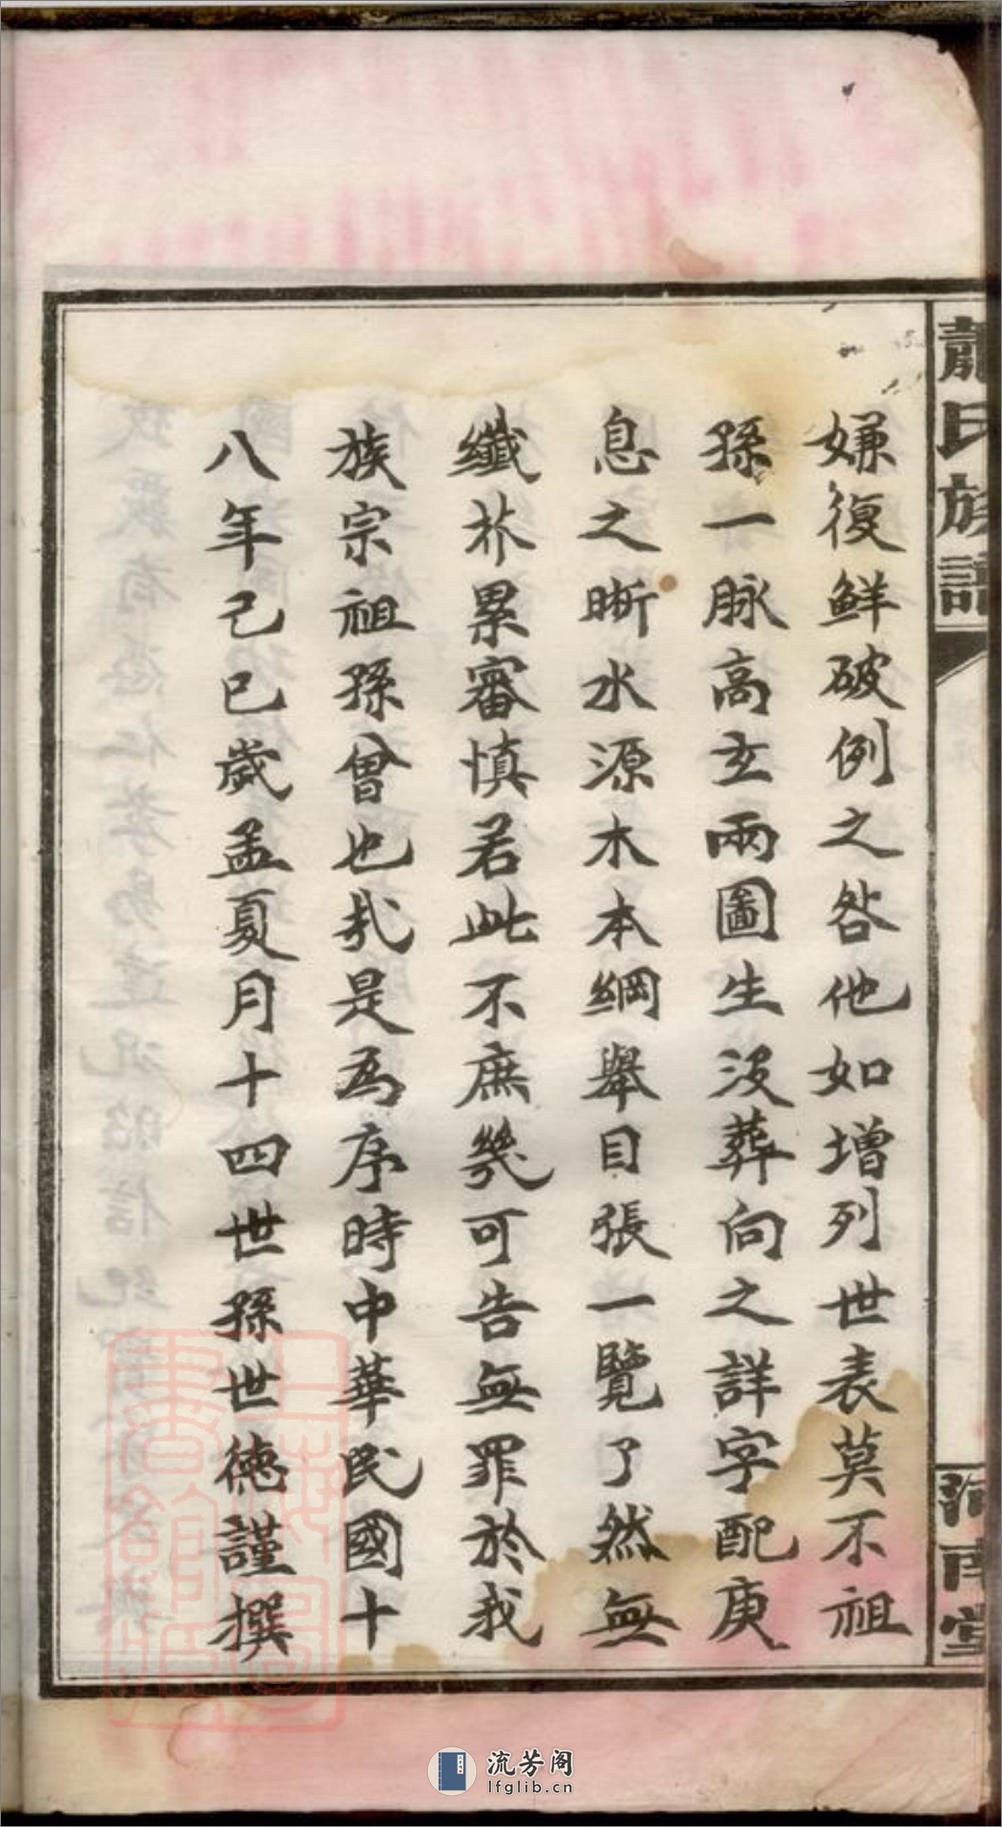 龍氏族譜
河南堂
嫌復鮮破例之咎他如增列世表莫不祖
孫一脉高玄兩圖生没葬向之詳字配庚
息之晰水源木本綱舉目張一覽了然無
纖芥累審慎若此不庶幾可告無罪於我
族宗祖孫曾也哉是為序時中華民國十
八年己巳歲孟夏月十四世孫世德謹撰
流芳阁
lfglib.cn